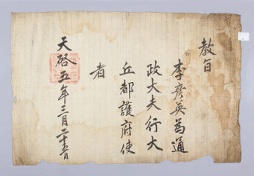 教旨
李彦英為通
政大夫行大
丘都護府使
者
天啓五年三月二十日